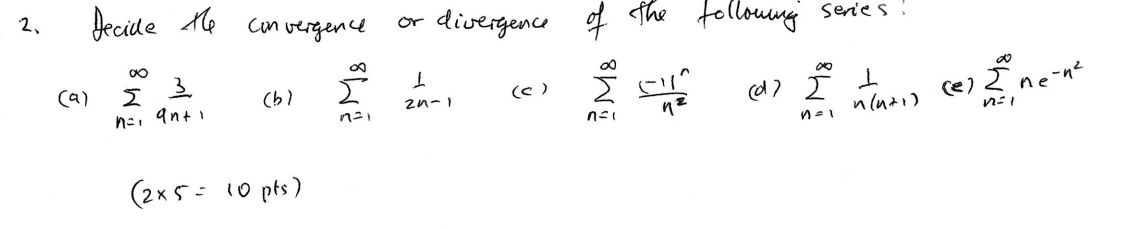 2. Decide the convergence or divergence of the following series:
(a) ∑_{n=1}^{∞} 3/(9n+1) (b) ∑_{n=1}^{∞} 1/(2n-1) (c) ∑_{n=1}^{∞} (-1)^n/n^2 (d) ∑_{n=1}^{∞} 1/(n(n+1)) (e) ∑_{n=1}^{∞} ne^{-n^2}
(2×5 = 10 pts)